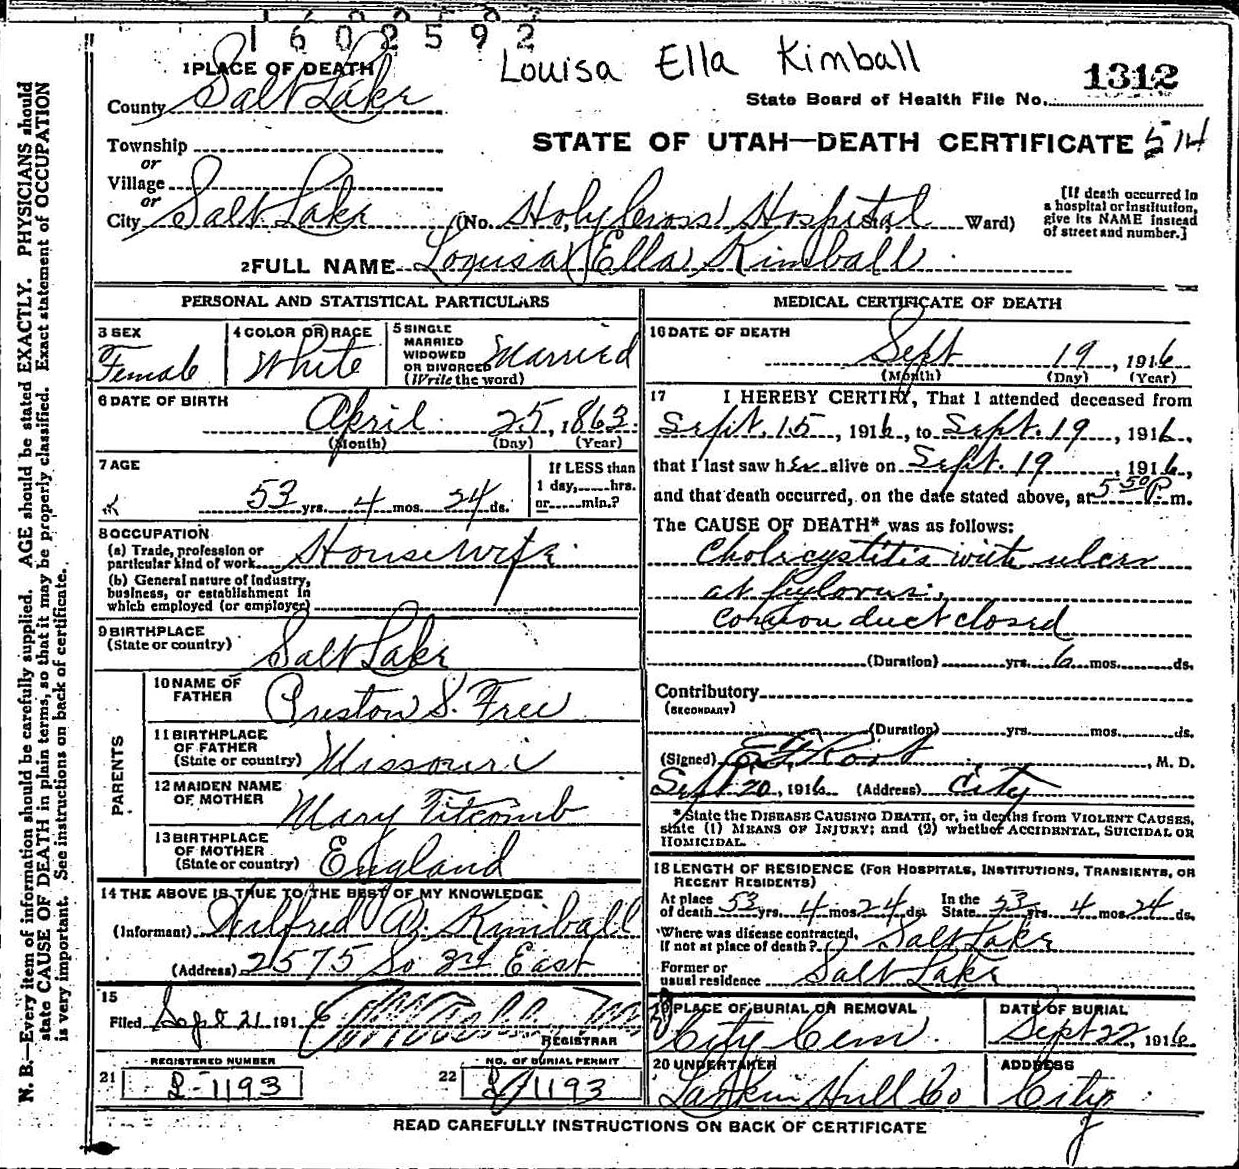 1602592
Louisa Ella Kimball
1 PLACE OF DEATH
County Salt Lake
State Board of Health File No. 1312
Township
or
Village
or
City Salt Lake
STATE OF UTAH—DEATH CERTIFICATE 514
(No. Holy Cross Hospital Ward)
[If death occurred in
a hospital or institution,
give its NAME instead
of street and number.]
2 FULL NAME Louisa Ella Kimball
PERSONAL AND STATISTICAL PARTICULARS
3 SEX
Female
4 COLOR OR RACE
White
5 SINGLE
MARRIED
WIDOWED
OR DIVORCED
(Write the word)
Married
6 DATE OF BIRTH
April 25, 1863
(Month) (Day) (Year)
7 AGE
53 yrs. 4 mos. 24 ds.
If LESS than
1 day, hrs.
or min.?
8 OCCUPATION
(a) Trade, profession or
particular kind of work Housewife
(b) General nature of industry,
business, or establishment in
which employed (or employer)
9 BIRTHPLACE
(State or country)
Salt Lake
PARENTS
10 NAME OF
FATHER
Preston S. Free
11 BIRTHPLACE
OF FATHER
(State or country) Missouri
12 MAIDEN NAME
OF MOTHER
Mary Titcomb
13 BIRTHPLACE
OF MOTHER
(State or country) England
14 THE ABOVE IS TRUE TO THE BEST OF MY KNOWLEDGE
(Informant) Wilfred A. Kimball
(Address) 2575 So 3rd East
15
Filed Sept 21 191 6
REGISTRAR
REGISTERED NUMBER
21 2-1193
NO. OF BURIAL PERMIT
22 1193
MEDICAL CERTIFICATE OF DEATH
16 DATE OF DEATH
Sept 19, 1916
(Month) (Day) (Year)
17 I HEREBY CERTIFY, That I attended deceased from
Sept. 15, 1916, to Sept. 19, 1916,
that I last saw her alive on Sept. 19, 1916,
and that death occurred, on the date stated above, at 5 50 P. m.
The CAUSE OF DEATH* was as follows:
Cholicystitis with ulcer
at pylorus;
common duct closed
(Duration) yrs. 6 mos. ds.
Contributory
(SECONDARY)
(Duration) yrs. mos. ds.
(Signed) , M. D.
Sept 20, 1916 (Address) City
*State the DISEASE CAUSING DEATH, or, in deaths from VIOLENT CAUSES,
state (1) MEANS OF INJURY; and (2) whether ACCIDENTAL, SUICIDAL OR
HOMICIDAL.
18 LENGTH OF RESIDENCE (FOR HOSPITALS, INSTITUTIONS, TRANSIENTS, OR
RECENT RESIDENTS)
At place
of death 53 yrs. 4 mos. 24 ds.
In the
State 53 yrs. 4 mos. 24 ds.
Where was disease contracted,
if not at place of death? Salt Lake
Former or
usual residence Salt Lake
19 PLACE OF BURIAL OR REMOVAL
City Cem.
DATE OF BURIAL
Sept 22, 1916
20 UNDERTAKER
Larkin Hull Co
ADDRESS
City
READ CAREFULLY INSTRUCTIONS ON BACK OF CERTIFICATE
N. B.—Every item of information should be carefully supplied. AGE should be stated EXACTLY. PHYSICIANS should
state CAUSE OF DEATH in plain terms, so that it may be properly classified. Exact statement of OCCUPATION
is very important. See instructions on back of certificate.